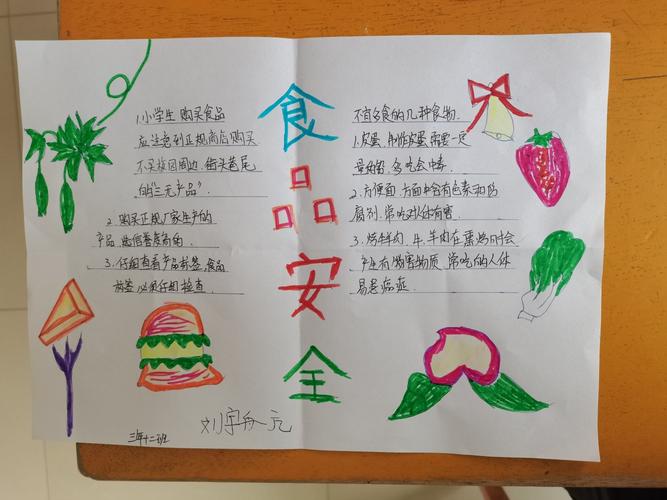 食品安全
1.小学生 购买食品
应注意到正规商店购买
不买校园周边、街头巷尾
的"三无产品"
2. 购买正规厂家生产的
产品
3. 仔细查看产品标签。食品
标签必须仔细检查
不宜多食的几种食物.
1.皮蛋,制作皮蛋需要一定
量的铅,多吃会中毒
2.方便面,方面中含有色素和防
腐剂,常吃对人体有害.
3.烤牛羊肉,牛、羊肉在熏烤时会
产生有伤害物质,常吃的人体
易患癌症
三年十二班